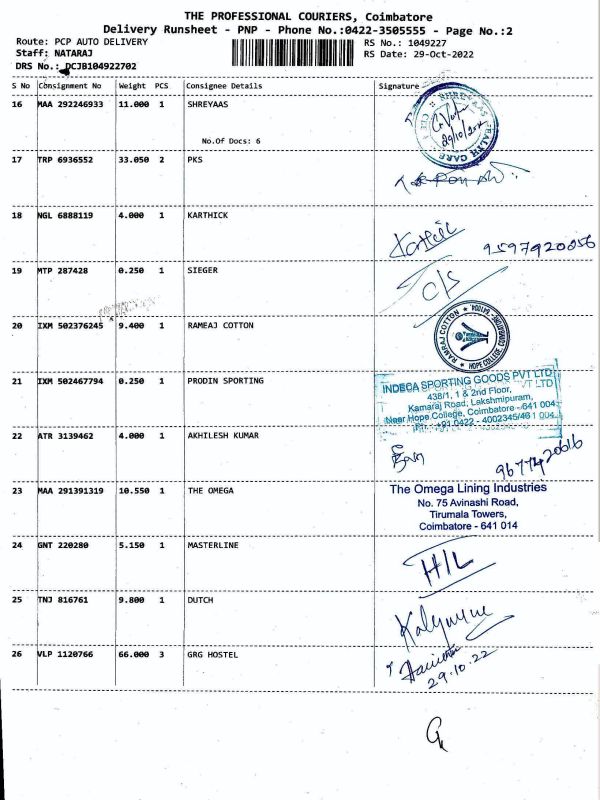 THE PROFESSIONAL COURIERS, Coimbatore
Delivery Runsheet - PNP - Phone No.:0422-3505555 - Page No.:2
Route: PCP AUTO DELIVERY RS No.: 1049227
Staff: NATARAJ RS Date: 29-Oct-2022
DRS No.: DCJB104922702
S No Consignment No Weight PCS Consignee Details Signature
16 MAA 292246933 11.000 1 SHREYAAS
SHREYAAS HEALTH CARE CBE
29/10/2022
No.Of Docs: 6
17 TRP 6936552 33.050 2 PKS
18 NGL 6888119 4.000 1 KARTHICK
Karthik 9597920056
19 MTP 287428 0.250 1 SIEGER
C/S
20 IXM 502376245 9.400 1 RAMEAJ COTTON
RAMRAJ COTTON HOPE COLLEGE, COIMBATORE - 641004
21 IXM 502467794 0.250 1 PRODIN SPORTING
INDECA SPORTING GOODS PVT LTD
438/1, 1 & 2nd Floor,
Kamaraj Road, Lakshmipuram,
Near Hope College, Coimbatore -641 004
PH : +91 0422 - 4002345/46
22 ATR 3139462 4.000 1 AKHILESH KUMAR
9677420616
23 MAA 291391319 10.550 1 THE OMEGA
The Omega Lining Industries
No. 75 Avinashi Road,
Tirumala Towers,
Coimbatore - 641 014
24 GNT 220280 5.150 1 MASTERLINE
H/L
25 TNJ 816761 9.800 1 DUTCH
26 VLP 1120766 66.000 3 GRG HOSTEL
29.10.22